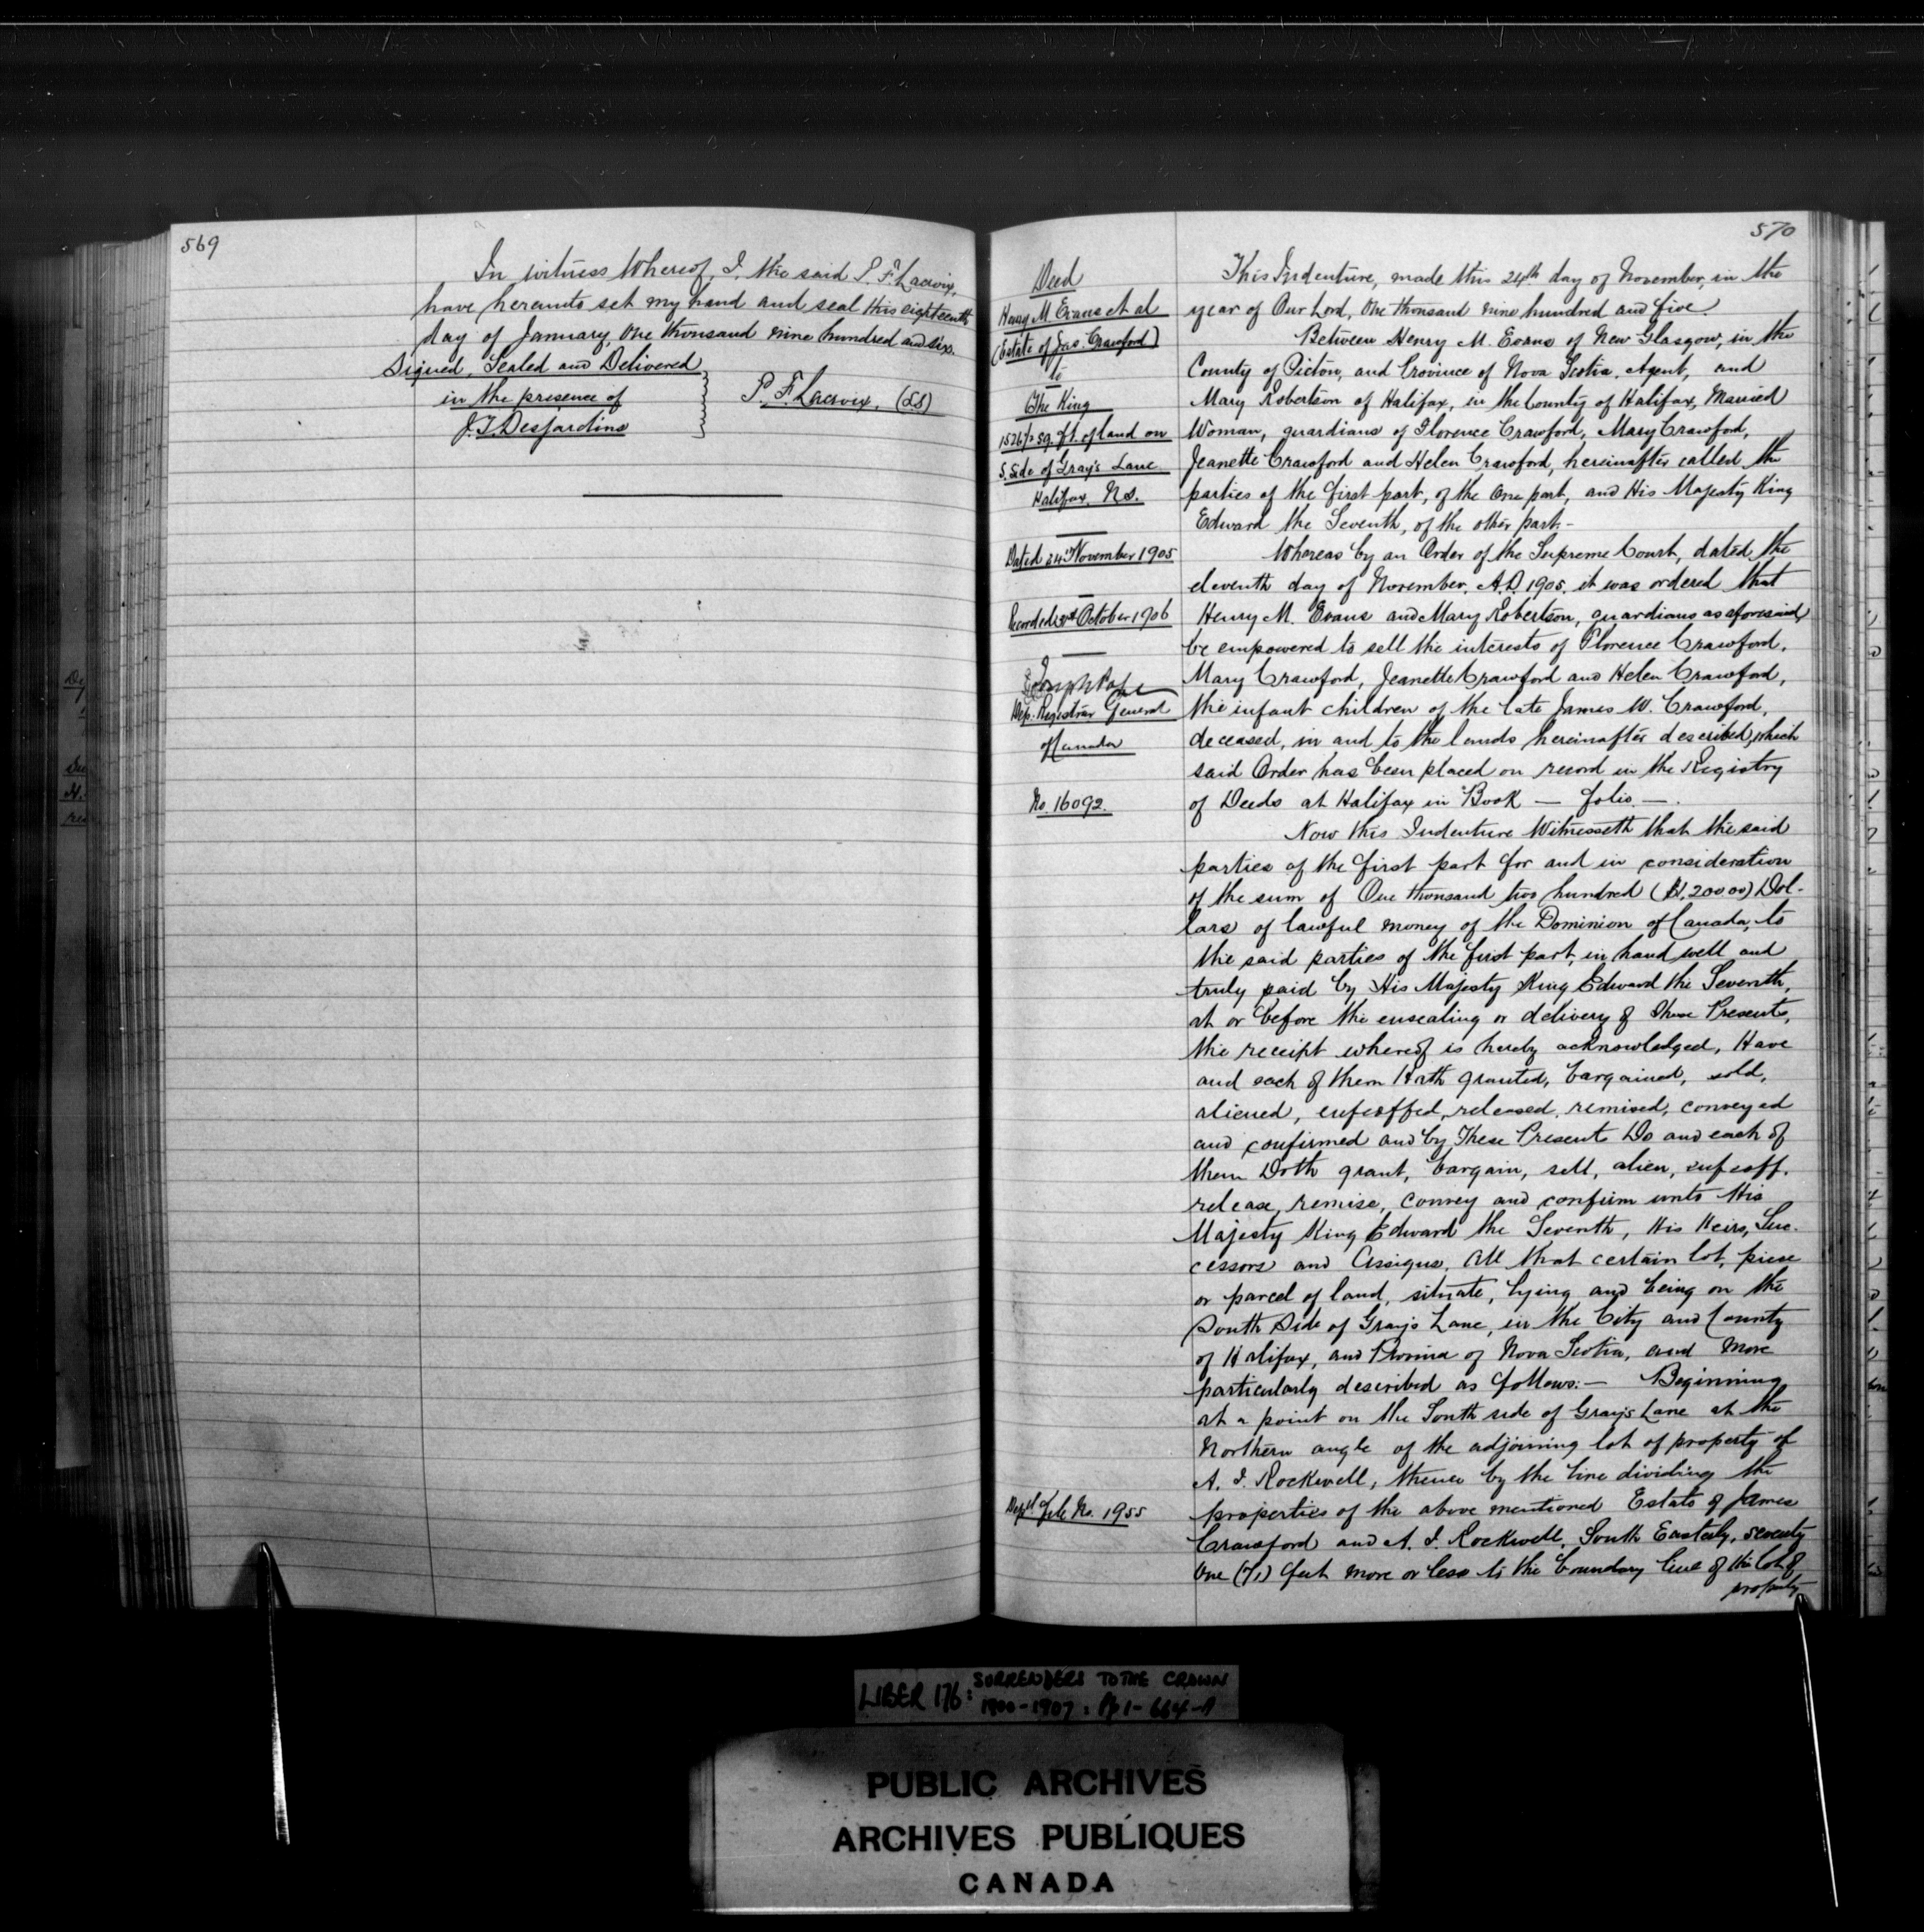 569
In witness Whereof, I, the said P. F. Lacroix,
have hereunto set my hand and seal this eighteenth
day of January, One thousand nine hundred and six.
Signed, Sealed and Delivered
in the presence of
J. T. Desjardins
P. F. Lacroix, (LS)
570
Deed
Henry M Evans et al
(Estate of Jas. Crawford)
to
The King
1526½ sq. ft. of land on
S. Side of Gray's Lane
Halifax, N.S.
Dated 24th November 1905
Recorded October 1906
Joseph Pope
Dep. Registrar General
of Canada
No. 16092.
Deptl File No. 1955
This Indenture, made this 24th day of November, in the
year of Our Lord, One thousand nine hundred and five.
Between Henry M. Evans of New Glasgow, in the
County of Pictou, and Province of Nova Scotia, Agent, and
Mary Robertson of Halifax, in the County of Halifax, Married
Woman, guardians of Florence Crawford, Mary Crawford,
Jeanette Crawford and Helen Crawford, hereinafter called the
parties of the first part, of the One part, and His Majesty King
Edward the Seventh, of the other part,-
Whereas by an Order of the Supreme Court, dated the
eleventh day of November, A.D. 1905, it was ordered that
Henry M. Evans and Mary Robertson, guardians as aforesaid,
be empowered to sell the interests of Florence Crawford,
Mary Crawford, Jeanette Crawford and Helen Crawford,
the infant children of the late James W. Crawford,
deceased, in and to the lands hereinafter described, which
said Order has been placed on record in the Registry
of Deeds at Halifax in Book — folio —.
Now this Indenture Witnesseth that the said
parties of the first part for and in consideration
of the sum of One thousand two hundred ($1,200 00) Dol-
lars of lawful money of the Dominion of Canada, to
the said parties of the first part, in hand well and
truly paid by His Majesty King Edward the Seventh,
at or before the ensealing or delivery of These Presents,
the receipt whereof is hereby acknowledged, Have
and each of them Hath granted, bargained, sold,
aliened, enfeoffed, released, remised, conveyed
and confirmed and by These Presents Do and each of
them Doth grant, bargain, sell, alien, enfeoff,
release, remise, convey and confirm unto His
Majesty King Edward the Seventh, His Heirs, Suc-
cessors and Assigns, All that certain lot, piece
or parcel of land, situate, lying and being on the
South Side of Gray's Lane, in the City and County
of Halifax, and Province of Nova Scotia, and more
particularly described as follows:— Beginning
at a point on the South side of Gray's Lane at the
Northern angle of the adjoining lot of property of
A. I. Rockwell, thence by the line dividing the
properties of the above mentioned Estate of James
Crawford and A. I. Rockwell, South Easterly, seventy
One (71) feet more or less to the boundary line of the lot of
property
LIBER 176: SURRENDERS TO THE CROWN
1900-1907: Pp 1-664-A
PUBLIC ARCHIVES
ARCHIVES PUBLIQUES
CANADA